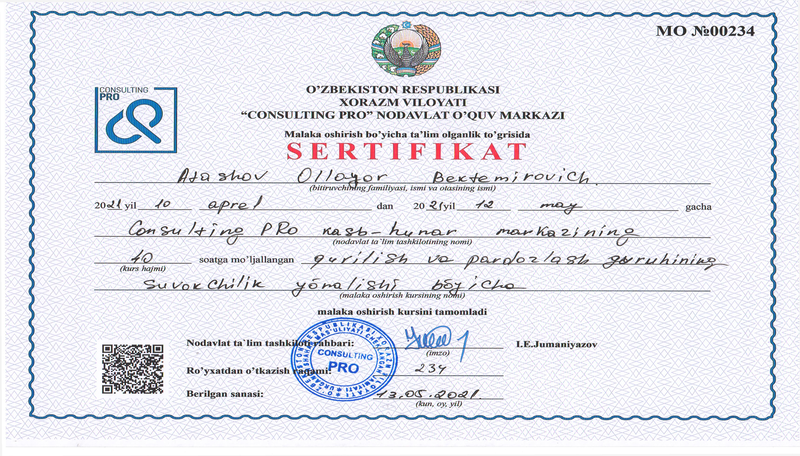 MO №00234
CONSULTING
PRO
O’ZBEKISTON RESPUBLIKASI
XORAZM VILOYATI
“CONSULTING PRO” NODAVLAT O’QUV MARKAZI
Malaka oshirish bo’yicha ta’lim olganlik to’grisida
SERTIFIKAT
Atashov Ollayor Bektemirovich.
(bitiruvchining familiyasi, ismi va otasining ismi)
2021 yil 10 aprel dan 2021 yil 12 may gacha
Consulting PRo kasb-hunar markazining
(nodavlat ta`lim tashkilotining nomi)
40 soatga mo’ljallangan qurilish va pardozlash guruhining
(kurs hajmi)
Suvokchilik yōnalishi bōyicha
(malaka oshirish kursining nomi)
malaka oshirish kursini tamomladi
Nodavlat ta`lim tashkiloti rahbari: I.E.Jumaniyazov
(imzo)
CONSULTING
PRO
Ro’yxatdan o’tkazish raqami: 234
Berilgan sanasi: 13.05.2021.
(kun, oy, yil)